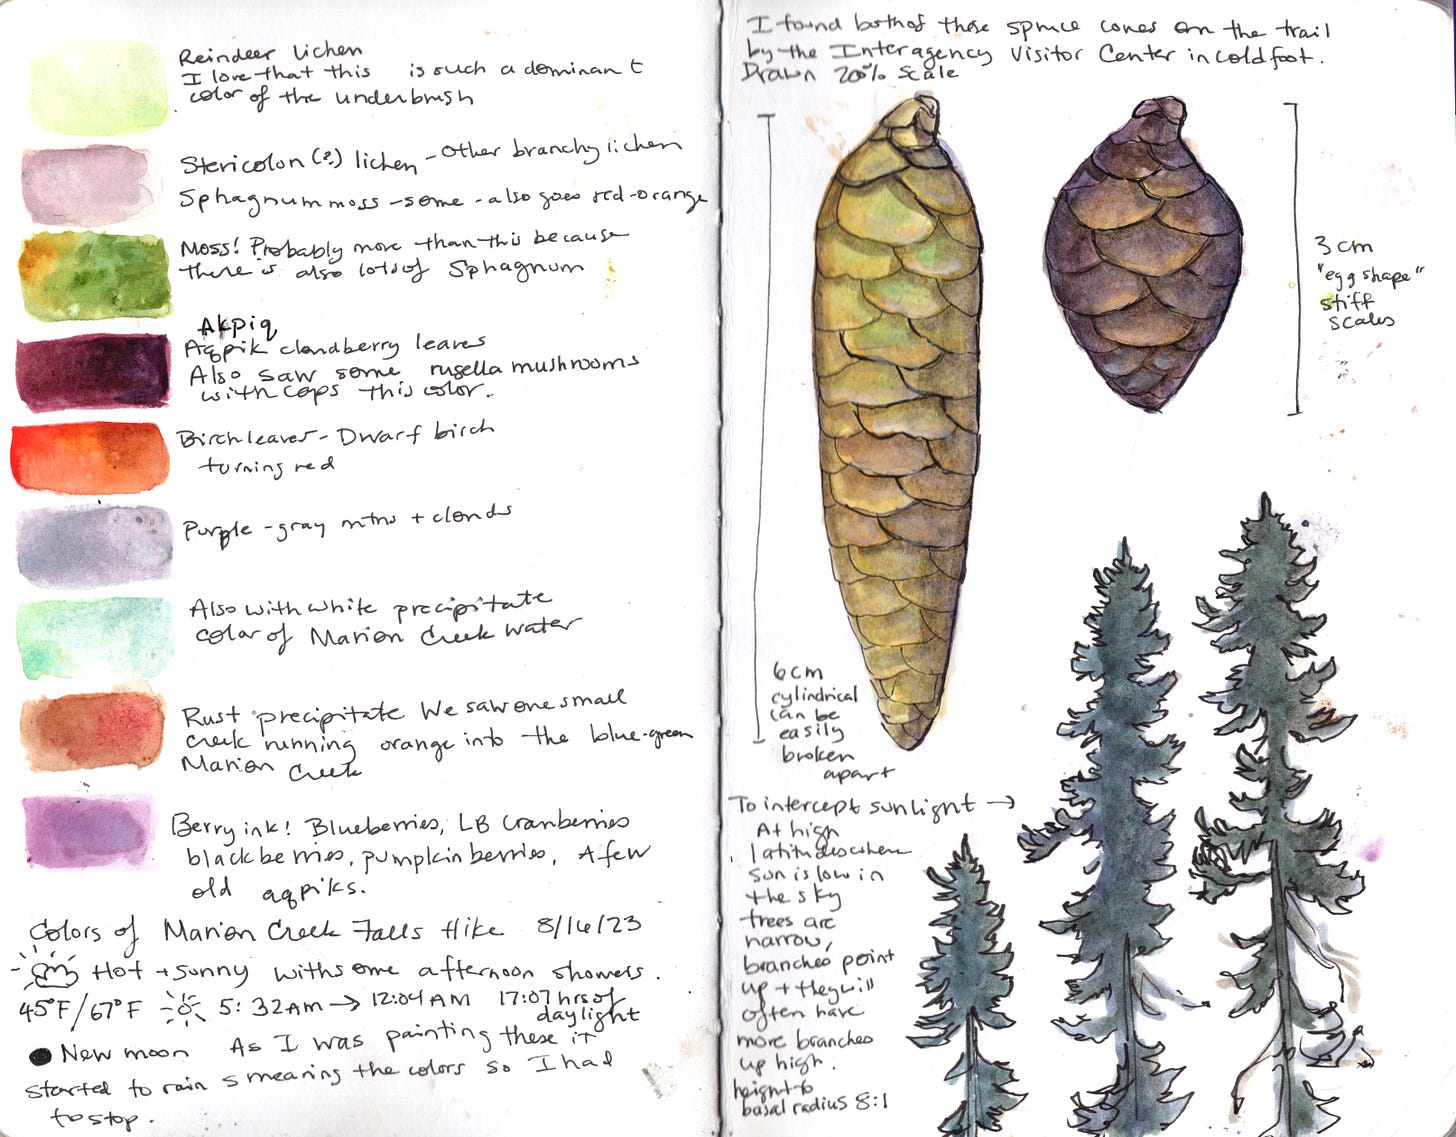 Reindeer lichen
I love that this is such a dominant
color of the underbrush
Stericolon (?) lichen - Other branchy lichen
Sphagnum moss - some - also goes red-orange
Moss! Probably more than this because
there is also lots of Sphagnum
Akpiq
Aqpik cloudberry leaves
Also saw some rusella mushrooms
with caps this color.
Birch leaves - Dwarf birch
turning red
Purple-gray mtns + clouds
Also with white precipitate
color of Marion Creek Water
Rust precipitate We saw one small
creek running orange into the blue-green
Marion Creek
Berry ink! Blueberries, LB Cranberries
blackberries, pumpkin berries, A few
old aqpiks.
Colors of Marion Creek Falls Hike 8/16/23
Hot + sunny with some afternoon showers.
45°F/67°F 5:32AM → 12:04AM 17:07 hrs of
daylight
New moon As I was painting these it
started to rain smearing the colors so I had
to stop.
I found both of these spruce cones on the trail
by the Interagency Visitor Center in coldfoot.
Drawn 200% Scale
3 cm
"egg shape"
stiff
scales
6 cm
cylindrical
can be
easily
broken
apart
To intercept sunlight →
At high
latitudes where
sun is low in
the sky
trees are
narrow,
branches point
up + they will
often have
more branches
up high.
height to
basal radius 8:1